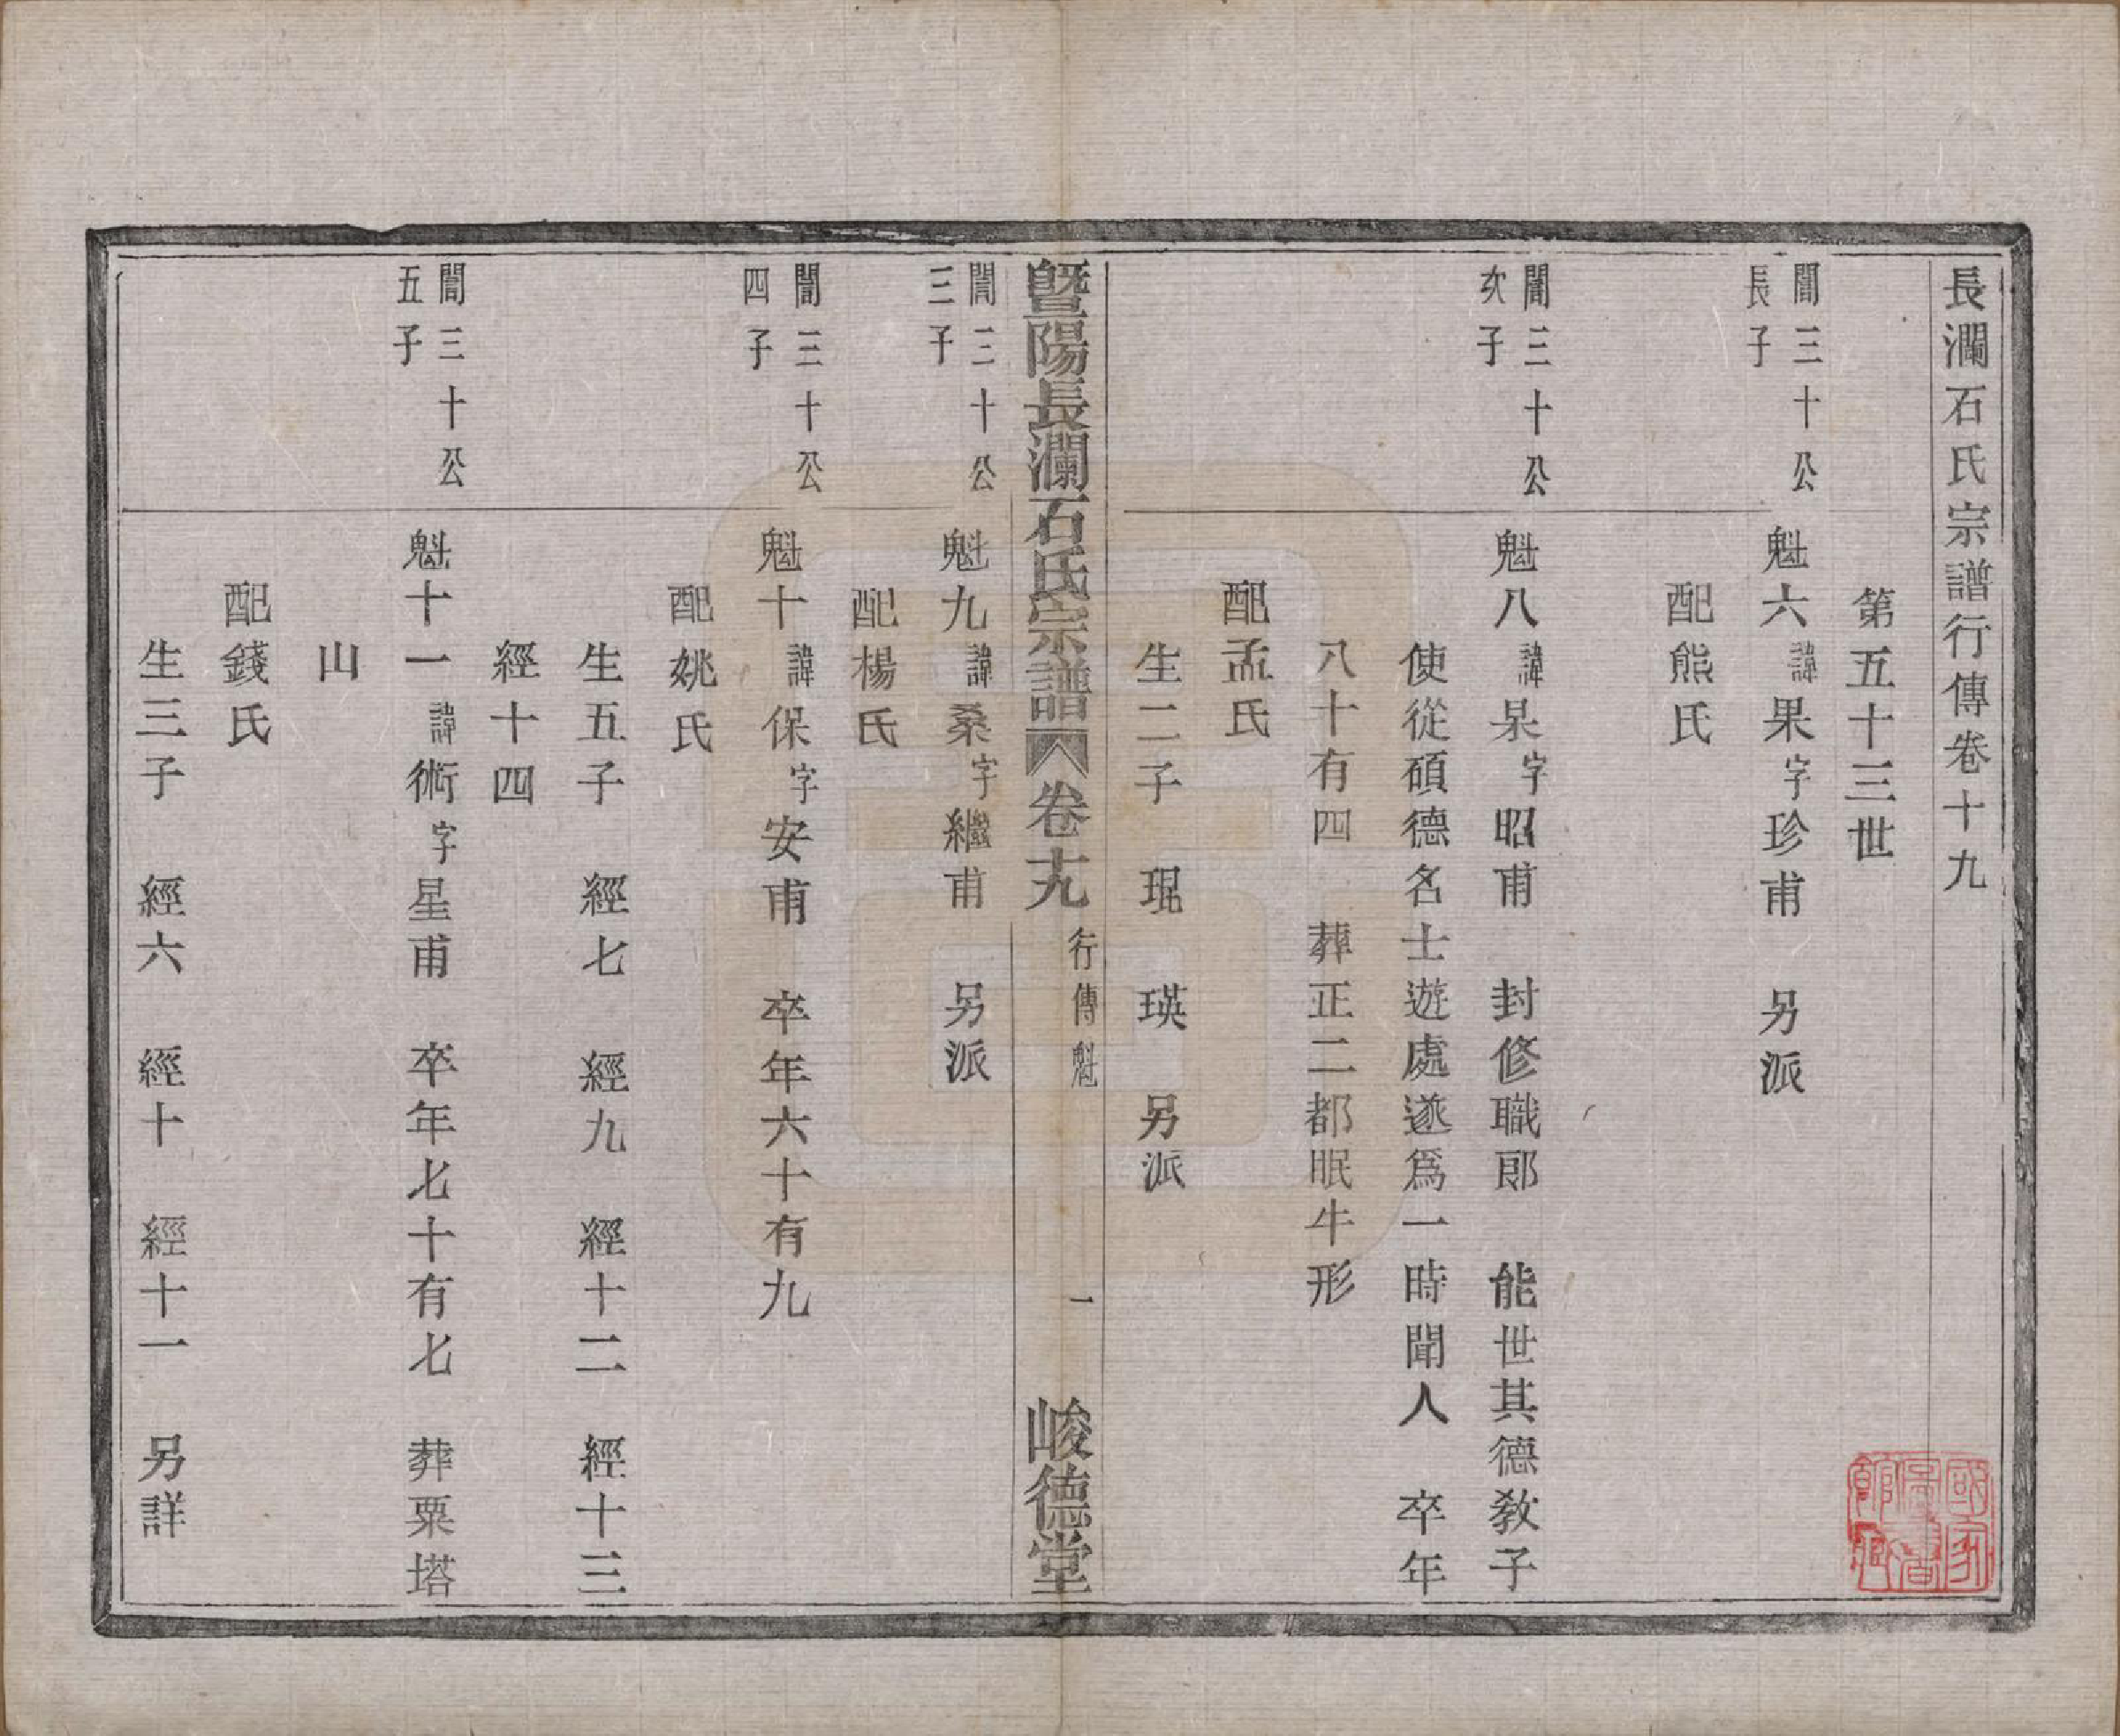 長瀾石氏宗譜行傳卷十九
第五十三世
誾三十公
長子
魁六諱果字珍甫　另派
配熊氏
誾三十公
次子
魁八諱杲字昭甫　封修職郎　能世其德敎子
使從碩德名士遊處遂爲一時聞人　卒年
八十有四　葬正二都眠牛形
配孟氏
生二子　琨　瑛　另派
暨陽長瀾石氏宗譜　卷十九　行傳魁　一　峻德堂
誾三十公
三子
魁九諱桑字繼甫　另派
配楊氏
誾三十公
四子
魁十諱保字安甫　卒年六十有九
配姚氏
生五子　經七　經九　經十二　經十三
經十四
誾三十公
五子
魁十一諱術字星甫　卒年七十有七　葬粟塔
山
配錢氏
生三子　經六　經十　經十一　另詳